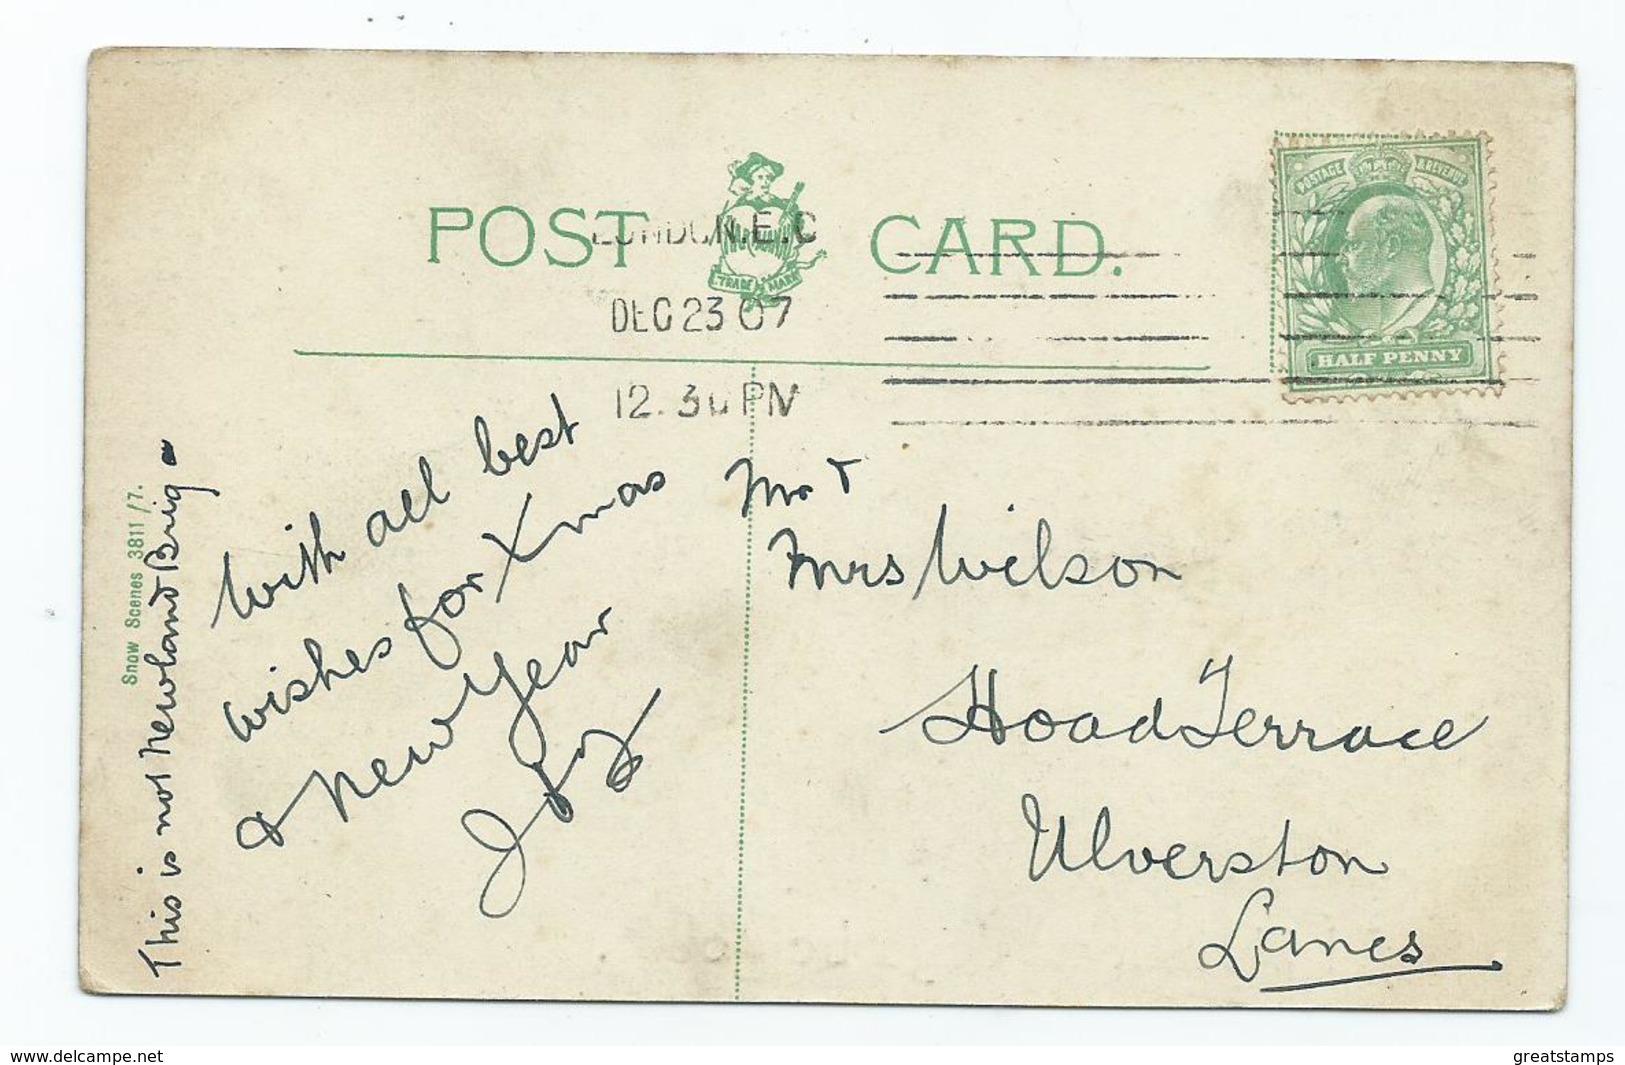 POST CARD.
TRADE MARK
LONDON. E.C
DEC 23 07
12.30 PM
POSTAGE & REVENUE
HALF PENNY
With all best
wishes for Xmas
& New Year
Mr &
Mrs Wilson
Hoad Terrace
Ulverston
Lancs
This is not Newland Brig
Snow Scenes 3811/7.
www.delcampe.net
greatstamps